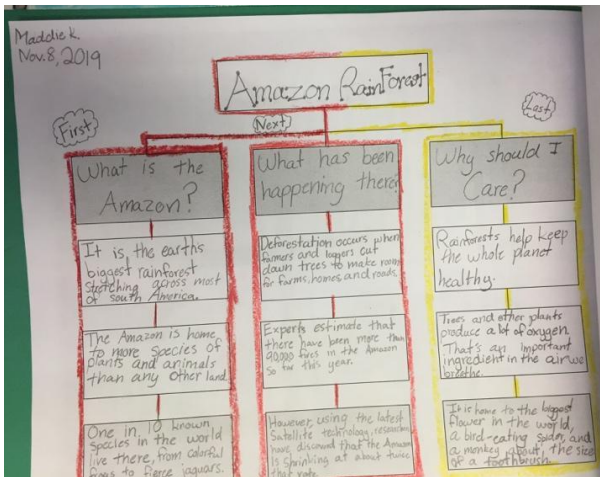 Maddie K.
Nov. 8, 2019
Amazon RainForest
First
Next
Last
What is the
Amazon?
It is the earths
biggest rainforest
stretching across most
of south America.
The Amazon is home
to more species of
plants and animals
than any other land
One in 10 known
species in the world
live there, from colorful
frogs to fierce jaguars.
What has been
happening there?
Deforestation occurs when
farmers and loggers cut
down trees to make room
for farms, homes, and roads.
Experts estimate that
there have been more than
90,000 fires in the Amazon
so far this year.
However, using the latest
Satellite technology, researchers
have discoverd that the Amazon
is shrinking at about twice
that rate.
Why should I
Care?
Rainforests help keep
the whole planet
healthy.
Trees and other plants
produce a lot of oxygen.
That's an important
ingredient in the air we
breathe.
It is home to the biggest
flower in the world,
a bird-eating spider, and
a monkey about, the size
of a toothbrush.